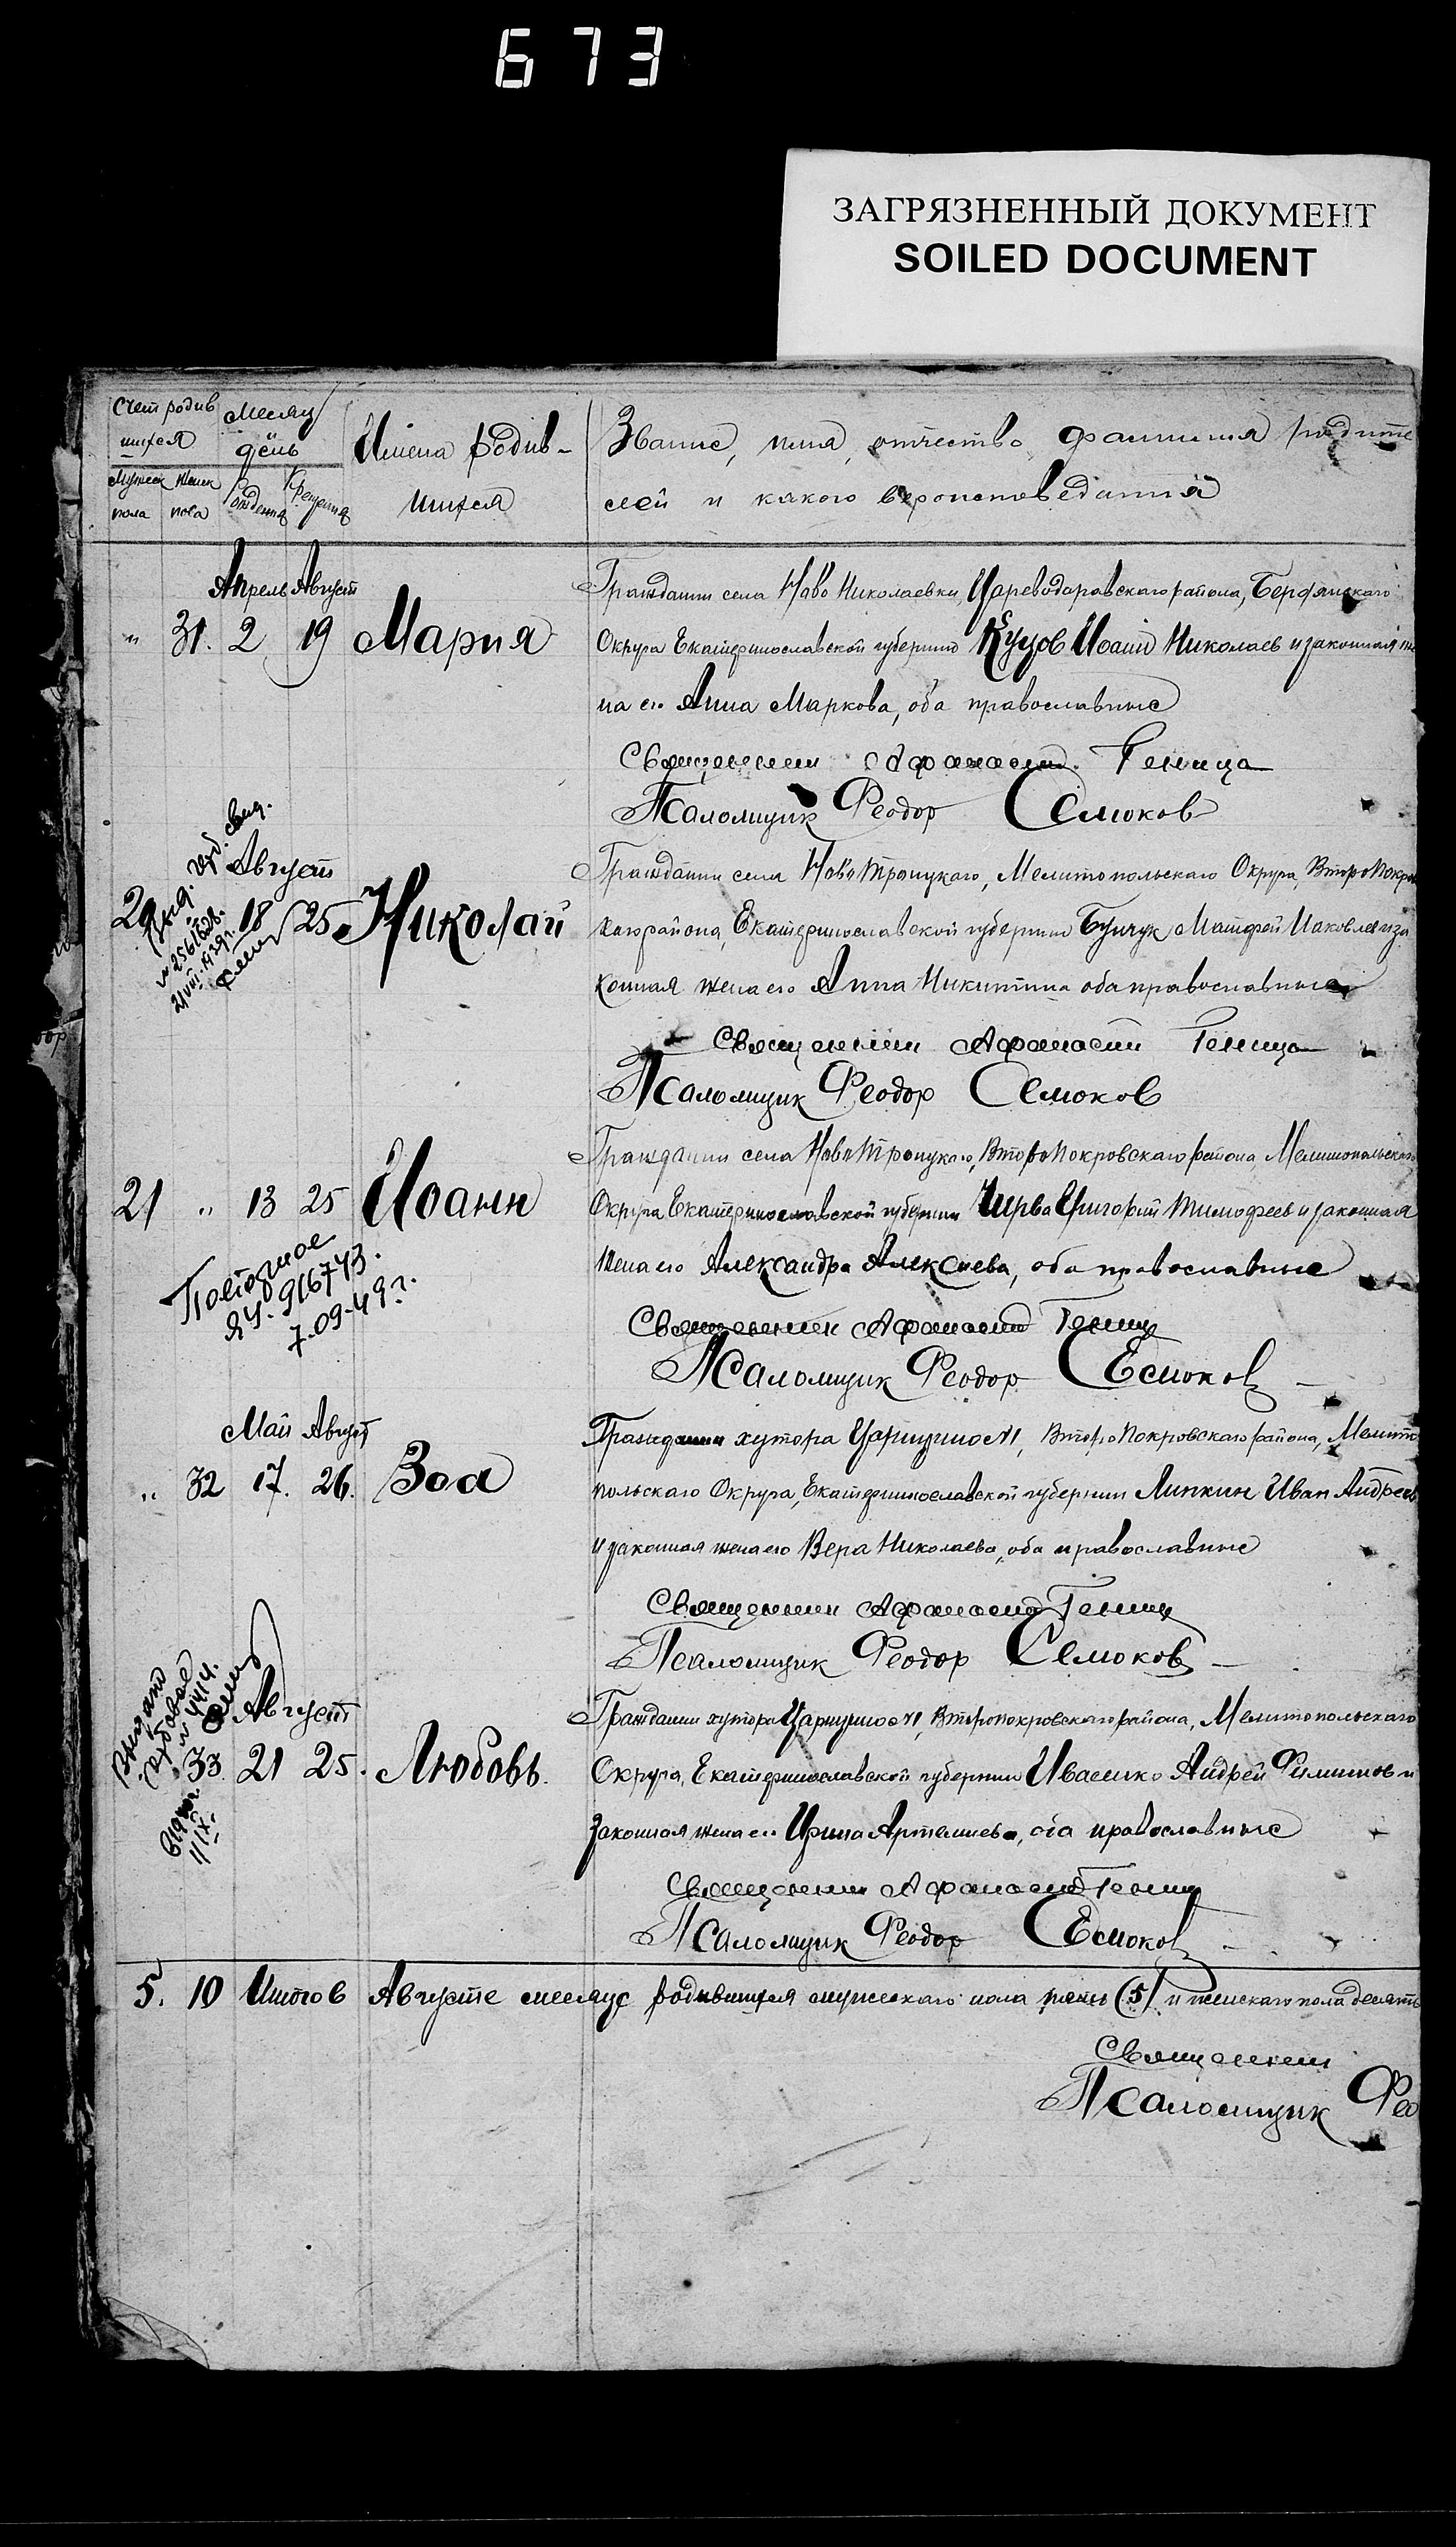 673
ЗАГРЯЗНЕННЫЙ ДОКУМЕНТ
SOILED DOCUMENT
Счет родив
шихся
Месяц
день
Имена родив-
шихся
Звание, имя, отчество, фамилия родите
лей и какого вероисповедания
Мужеск
пола
Женск
пола
Рождения
Крещения
Апрель Август
" 31. 2 19 Мария
Гражданин села Ново Николаевки, Цареводаровскаго района, Бердянскаго
Округа Екатеринославской губернии Куцов Иоанн Николаев и законная же
на его Анна Маркова, оба православные
Священник Афанасий Геница
Псаломщик Феодор Семоков
Август
20 18 25 Николай
№ 256
21 VIII 1939г.
Гражданин села Ново Троицкаго, Мелитопольскаго Округа, Второ Покров
скаго района, Екатеринославской губернии Бунчук Матфей Иаковлев и за
конная жена его Анна Никитина оба православные
Священник Афанасий Геница
Псаломщик Феодор Семоков
21 " 13 25 Иоанн
Повторное
ЯЧ. 916743.
7.09.49г.
Гражданин села Ново Троицкаго, Второ Покровскаго района, Мелитопольскаго
Округа Екатеринославской губернии Григорий Тимофеев и законная
жена его Александра Алексиева, оба православные
Священник Афанасий Гениц
Псаломщик Феодор Семоков
Май Август
" 32 17. 26. Зоа
Гражданин хутора Царицыно №1, Второ Покровскаго района, Мелито
польскаго Округа, Екатеринославской губернии Липкин Иван Андреев
и законная жена его Вера Николаева, оба православные
Священник Афанасий Гениц
Псаломщик Феодор Семоков
Август
33 21 25. Любовь.
№ 4414.
Гражданин хутора Царицыно №1, Второ Покровскаго района, Мелитопольскаго
Округа, Екатеринославской губернии Иваенко Андрей Филипов и
законная жена его Ирина Артемиева, оба православные
Священник Афанасий Гениц
Псаломщик Феодор Семоков
5. 10 Итого в Августе месяце родившихся мужескаго пола пять (5) и женскаго пола десять
Священник
Псаломщик Фео